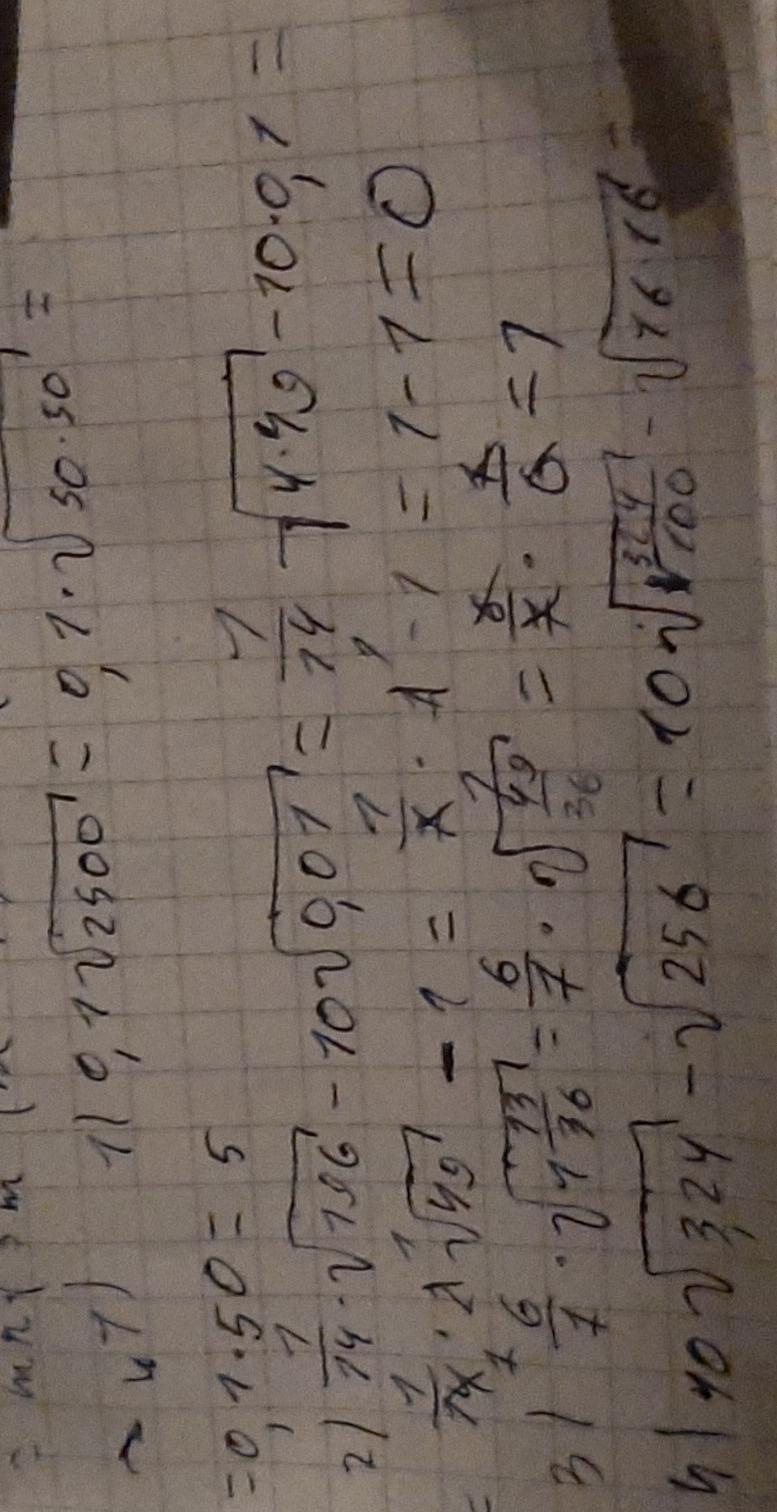 ~ 47) 1) 0,1√2500 = 0,1·√50·50 =
= 0,1·50 = 5
2) 1/14 · √196 - 10√0,01 = 1/14 √4·49 - 10·0,1 =
= 1/14 · 2√49 - 1 = 1/7 · 7 - 1 = 1 - 1 = 0
3) 6/7 · √1 13/36 = 6/7 · √49/36 = 6/7 · 7/6 = 1
4) 10√3,24 - √256 = 10√324/100 - √16·16 =